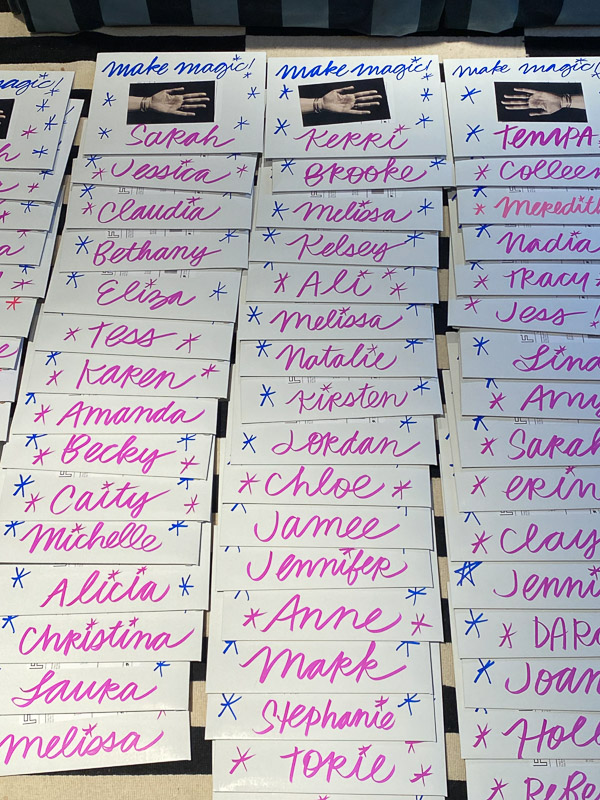 make magic!
Sarah
Jessica
Claudia
Bethany
Eliza
Tess
Karen
Amanda
Becky
Caity
Michelle
Alicia
Christina
Laura
Melissa
make magic!
Kerri
Brooke
Melissa
Kelsey
Ali
Melissa
Natalie
Kirsten
Jordan
Chloe
Jamee
Jennifer
Anne
Mark
Stephanie
Torie
make magic!
Tempa
Colleen
Meredith
Nadia
Tracy
Jess
Lina
Amy
Sarah
erin
Clay
Jenni
DARC
Joan
Holl
ReBe